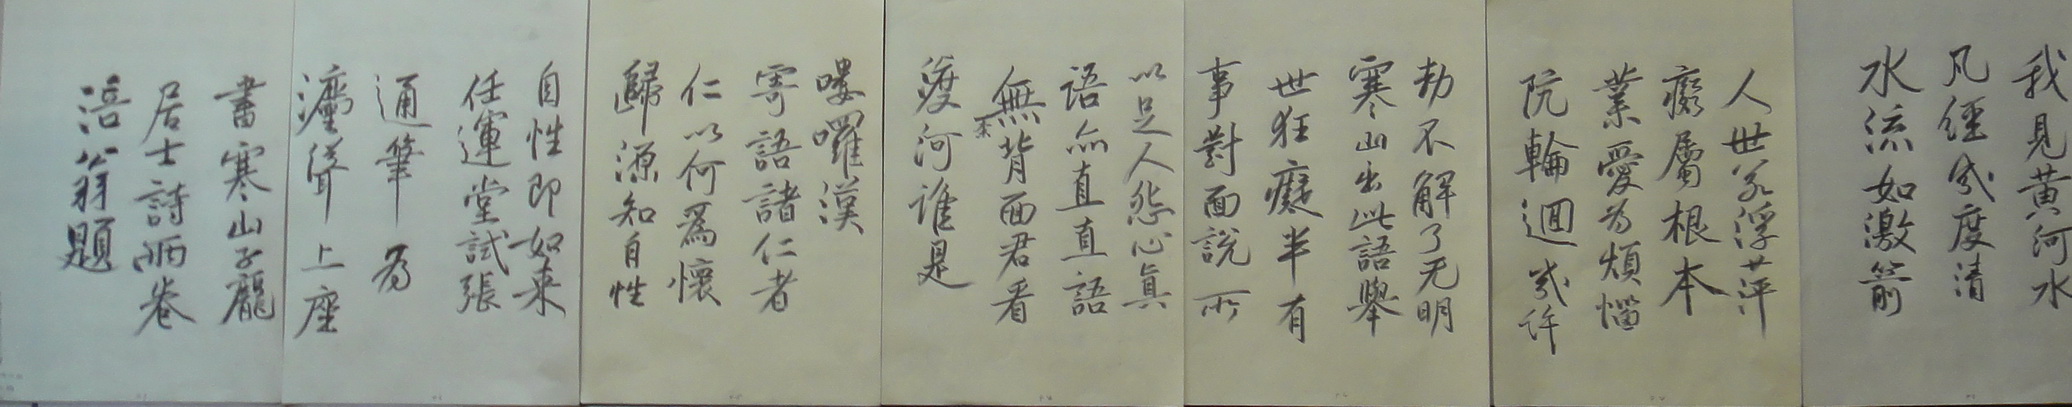 我見黄河水
凡經幾度清
水流如激箭
人世若浮萍
癡屬根本
業愛為煩惱
阬輪迴幾許
劫不解了无明
寒山出此語舉
世狂癡半有
事對面說所
以足人怨心真
語亦直直語
無背面君看
渡奈河誰是
嘍囉漢
寄語諸仁者
仁以何為懷
歸源知自性
自性即如来
任運堂試張
通筆為
瀘淂上座
書寒山子龐
居士詩兩卷
涪翁題